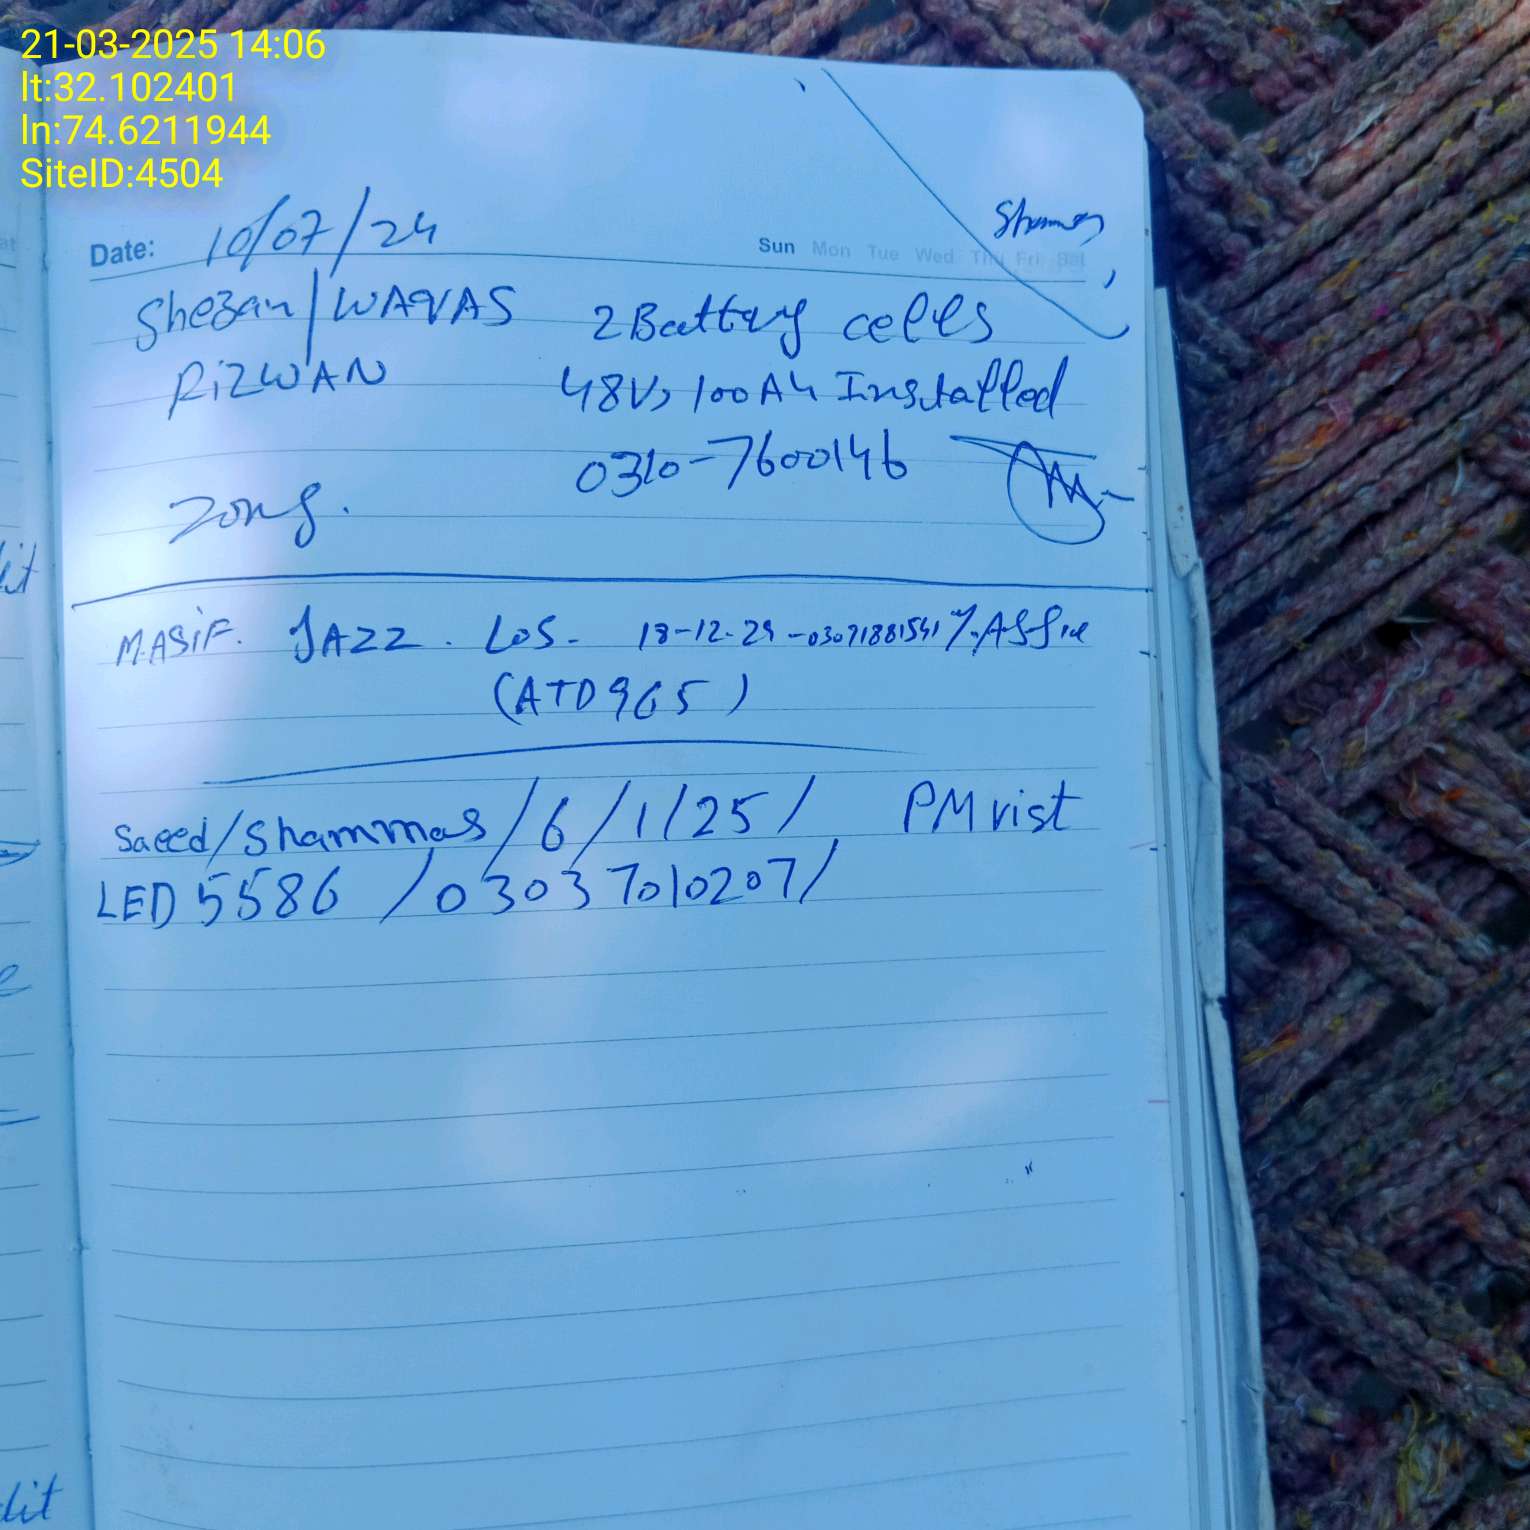 21-03-2025 14:06
lt:32.102401
ln:74.6211944
SiteID:4504
Date: 10/07/24
Sun Mon Tue Wed Thu Fri Sat
Shezan/WAQAS 2 Battery cells
RIZWAN 48V, 100AH Installed
0310-7600146
Zong.
M.ASIF. JAZZ. LOS. 18-12-24 -03071881541
(ATD965)
Saeed/Shammas/6/1/25/ PM vist
LED 5586 /03037010207/